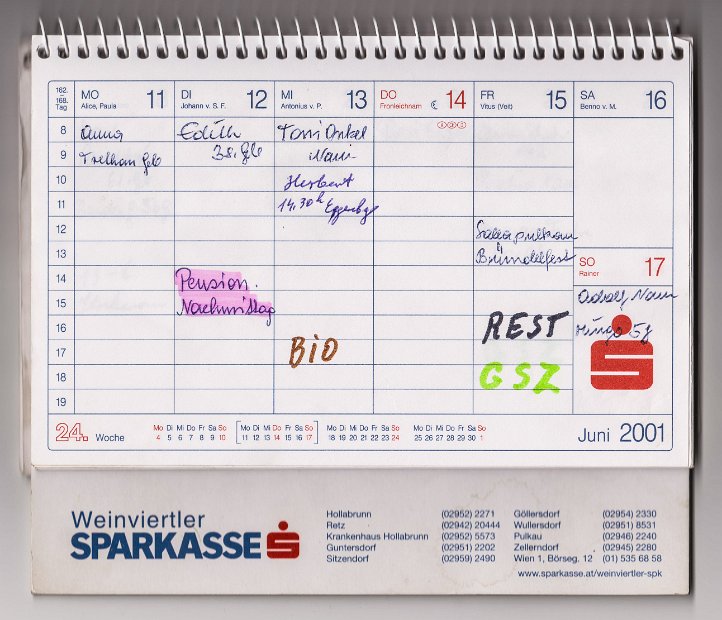 162.
–
168.
Tag
MO 11
Alice, Paula
DI 12
Johann v. S. F.
MI 13
Antonius v. P.
DO 14
Fronleichnam
FR 15
Vitus (Veit)
SA 16
Benno v. M.
8
9
10
11
12
13
14
15
16
17
18
19
Anna
Edith
38. Geb
Toni Onkel
Herbert
14,30h
①②③
Pension.
Nachmittag
BiO
Bründlfest
REST
GSZ
SO 17
Rainer
Adolf
Hugo
S
24. Woche
Mo Di Mi Do Fr Sa So
4 5 6 7 8 9 10
Mo Di Mi Do Fr Sa So
11 12 13 14 15 16 17
Mo Di Mi Do Fr Sa So
18 19 20 21 22 23 24
Mo Di Mi Do Fr Sa So
25 26 27 28 29 30 1
Juni 2001
Weinviertler
SPARKASSE
Hollabrunn (02952) 2271
Retz (02942) 20444
Krankenhaus Hollabrunn (02952) 5573
Guntersdorf (02951) 2202
Sitzendorf (02959) 2490
Göllersdorf (02954) 2330
Wullersdorf (02951) 8531
Pulkau (02946) 2240
Zellerndorf (02945) 2280
Wien 1, Börseg. 12 (01) 535 68 58
www.sparkasse.at/weinviertler-spk